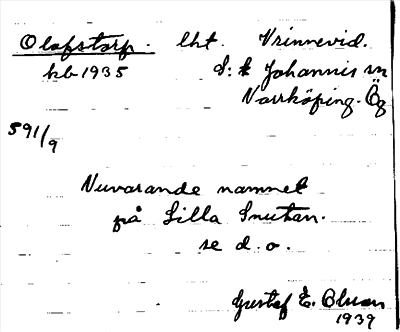 Olofstorp. lht. Vrinnevid.
kb 1935 S:t Johannis sn
Norrköping. Ög
591/9
Nuvarande namnet
på Lilla Snuhan.
se d. o.
Gustaf E. Bluon
1939